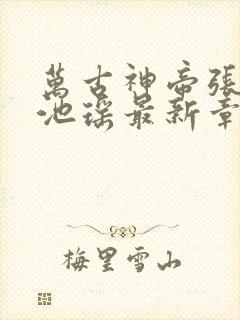 萬古神帝張
池瑤最新章
梅里雪山